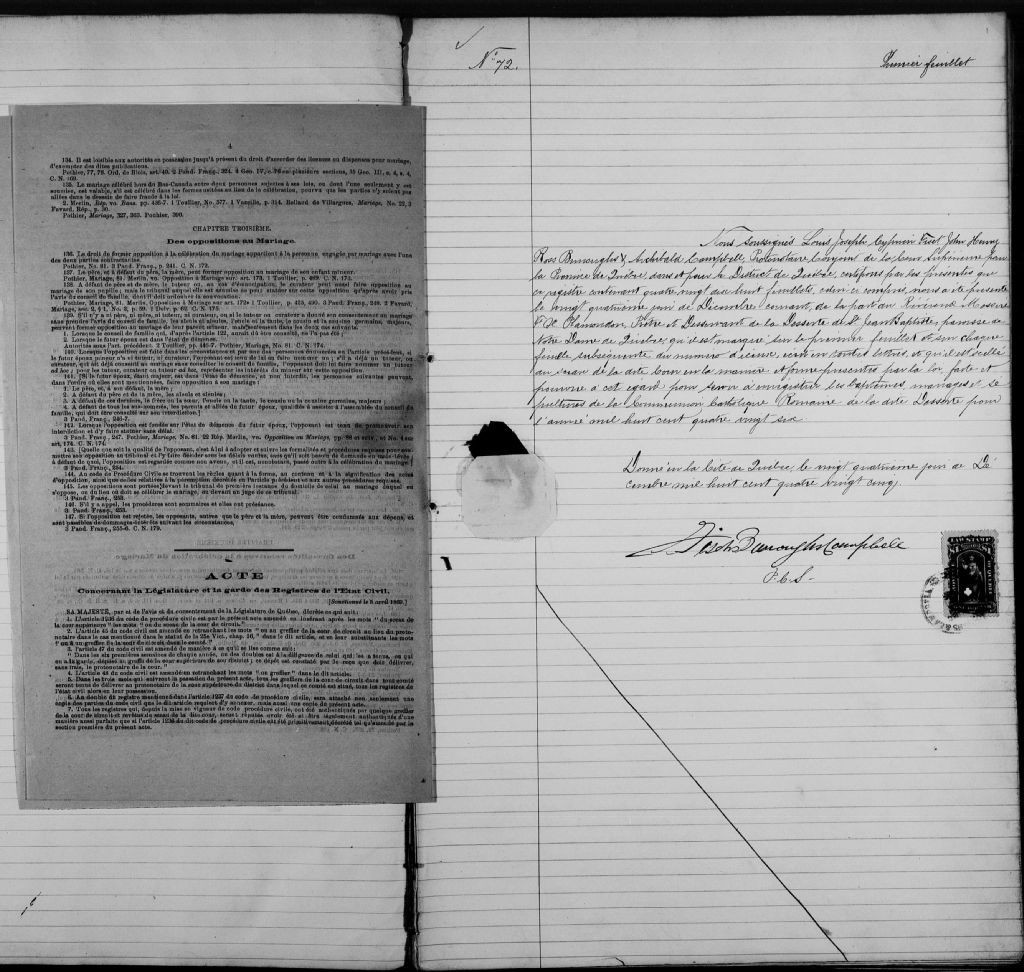 4
134. Il est loisible aux autorités en possession jusqu'à présent du droit d'accorder des licenses ou dispenses pour mariage,
d'exempter des dites publications.
Pothier, 77, 78. Ord. de Blois, art. 40. 2 Pand. Franç., 324. 4 Geo. IV, c. 76 en plusieurs sections, 35 Geo. III, c. 4, s. 4,
C. N. 169.
135. Le mariage célébré hors du Bas-Canada entre deux personnes sujettes à ses lois, ou dont l'une seulement y est
soumise, est valable, s'il est célébré dans les formes usitées au lieu de la célébration, pourvu que les parties n'y soient pas
allées dans le dessein de faire fraude à la loi.
2 Merlin, Rép. vo. Bans, pp. 436-7. 1 Toullier, No. 577. 1 Vazeille, p. 314. Rolland de Villargues, Mariage, No. 22, 3
Favard, Rép., p. 30.
Pothier, Mariage, 327, 363. Pouhier, 390.
CHAPITRE TROISIÈME.
Des oppositions au Mariage.
136. Le droit de former opposition à la célébration du mariage appartient à la personne engagée par mariage avec l'une
des deux parties contractantes.
Pothier, No. 81. 3 Pand. Franç., p. 241. C. N. 172.
137. Le père, et à défaut du père, la mère, peut former opposition au mariage de son enfant mineur.
Pothier, Mariage, 81. Merlin, vo. Opposition à Mariage sur art. 173. 1 Toullier, p. 469. C. N. 173.
138. A défaut de père et de mère, le tuteur ou, au cas d'émancipation, le curateur peut aussi faire opposition au
mariage de son pupille mais le tribunal auquel elle est soumise ne peut statuer sur cette opposition qu'après avoir pris
l'avis du conseil de famille, dont il doit ordonner la convocation.
Pothier, Mariage, 81. Merlin, Opposition à Mariage sur art. 172. 1 Toullier, p. 435, 490. 3 Pand. Franç., 249. 2 Favard,
139. S'il n'y a ni père, ni mère, ni tuteur, ni curateur, ou si le tuteur ou curateur a donné son consentement au mariage
sans prendre l'avis du conseil de famille, les aïeuls et aïeules, l'oncle et la tante, le cousin et la cousine germains, majeurs,
peuvent former opposition au mariage de leur parent mineur, mais seulement dans les deux cas suivants:
1. Lorsque le conseil de famille qui, d'après l'article 122, aurait dû être consulté, ne l'a pas été;
2. Lorsque le futur époux est dans l'état de démence.
Autorités sous l'art. précédent. 2 Toullier, pp. 445-7. Pothier, Mariage, No. 81. C. N. 174.
140. Lorsque l'opposition est faite dans les circonstances et par une des personnes énumérées en l'article précédent, si
le futur époux mineur n'a ni tuteur, ni curateur, l'opposant est tenu de lui en faire nommer un; s'il a déjà un tuteur, ou
curateur, qui ait déjà consenti au mariage sans consulter le conseil de famille, l'opposant doit lui faire nommer un tuteur
ad hoc; pour les tuteur, curateur ou tuteur ad hoc, représenter les intérêts du mineur sur cette opposition.
141. [Si le futur époux, étant majeur, est dans l'état de démence, et non interdit, les personnes suivantes peuvent,
dans l'ordre où elles sont mentionnées, faire opposition à son mariage:
1. Le père, et, à son défaut, la mère;
2. A défaut du père et de la mère, les aïeuls et aïeules;
3. A défaut de ces derniers, le frère ou la sœur, l'oncle ou la tante, le cousin ou la cousine germains, majeurs;
4. A défaut de tous les sus-nommés, les parents et alliés du futur époux, qualifiés à assister à l'assemblée du conseil de
famille, qui doit être consulté sur son interdiction.]
3 Pand. Franç., 246-7.
142. Lorsque l'opposition est fondée sur l'état de démence du futur époux, l'opposant est tenu de promouvoir son
interdiction et d'y faire statuer sans délai.
3 Pand. Franç., 247. Pothier, Mariage, No. 81. 22 Rép. Merlin, vo. Opposition au Mariage, pp. 86 et suiv., et No. 4 sur
art. 174. C. N. 174.
143. [Quelle que soit la qualité de l'opposant, c'est à lui à adopter et suivre les formalités et procédures requises pour soumettre
ses opposition au tribunal et l'y faire décider sous les délais voulus, sans qu'il soit besoin de demande en main-levée;
à défaut de quoi, l'opposition est regardée comme non avenue, et il est, nonobstant, passé outre à la célébration du mariage.]
3 Pand. Franç., 254.
144. Au code de Procédure Civile se trouvent les règles quant à la forme, au contenu et à la signification des actes
d'opposition, ainsi que celles relatives à la péremption décrétée en l'article précédent et aux autres procédures requises.
145. Les oppositions sont portées devant le tribunal de première instance du domicile de celui au mariage duquel on
s'oppose, ou du lieu où doit se célébrer le mariage, ou devant un juge de ce tribunal.
3 Pand. Franç., 253.
146. S'il y a appel, les procédures sont sommaires et elles ont préséance.
3 Pand. Franç., 253.
147. Si l'opposition est rejetée, les opposants, autres que le père et la mère, peuvent être condamnés aux dépens, et
sont passibles des dommages-intérêts suivant les circonstances.
3 Pand. Franç., 255-6. C. N. 179.
ACTE
Concernant la Législature et la garde des Registres de l'Etat Civil.
[Sanctionné le 5 avril 1869.]
SA MAJESTÉ, par et de l'avis et du consentement de la Législature de Québec, décrète ce qui suit:
1. L'article 1236 du code de procédure civile est par le présent acte amendé en insérant après les mots "du sceau de
la cour supérieure" les mots "ou du sceau de la cour de circuit."
2. L'article 45 du code civil est amendé en retranchant les mots "ou au greffier de la cour de circuit au lieu du protonotaire
dans le cas mentionné dans le statut de la 25e Vict., chap. 16," dans le dit article, et en leur substituant les mots
"ou au greffier de la cour de circuit dans le comté."
3. l'article 47 du code civil est amendé de manière à ce qu'il se lise comme suit:
"Dans les six premières semaines de chaque année, un des doubles est à la diligence de celui qui les a tenus, ou qui
en a la garde, déposé au greffe de la cour supérieure de son district; ce dépôt est constaté par le reçu que doit délivrer,
sans frais, le protonotaire de la cour."
4. L'article 48 du code civil est amendé en retranchant les mots "ou greffier" dans le dit article.
5. Dans les trois mois qui suivront la passation du présent acte, tous les greffiers de la cour de circuit dans tout comté
seront tenus de délivrer au protonotaire de la cour supérieure du district dans lequel ce comté est situé, tous les registres de
l'état civil alors en leur possession.
6. Au double du registre mentionné dans l'article 1237 du code de procédure civile, sera attaché non seulement une
copie des parties du code civil que le dit article requiert d'y annexer, mais aussi une copie du présent acte.
7. Tous les registres qui, depuis la mise en vigueur du code de procédure civile, ont été authentiqués par quelque greffier
de la cour de circuit et revêtus du sceau de la dite cour, seront réputés avoir été et être légalement authentiqués d'une
manière aussi parfaite que si l'article 1236 du dit code de procédure civile eut été primitivement décrété tel qu'amendé par la
section première du présent acte.
No 72.
Premier feuillet
Nous soussignés Louis Joseph Cyprien Fiset, John Henry
Ross Burroughs & Archibald Campbell, Protonotaire Conjoint de la Cour Supérieure pour
la Province de Québec dans et pour le District de Québec, certifions par les présentes que
ce registre contenant quatre vingt dix huit feuillets, celui ci compris, nous a été présenté
le vingt quatrième jour de Décembre courant, de la part du Révérend Messire
F. H. Plamondon, Prêtre et Desservant de la Desserte de St Jean Baptiste, paroisse de
Notre Dame de Québec, qu'il est marqué sur le premier feuillet et sur chaque
feuille subséquente du numéro d'icelui, écrit en toutes lettres, et qu'il est scellé
au sceau de la dite Cour en la manière et forme prescrites par la loi faite et
pourvue à cet égard pour servir à enregistrer les baptêmes, mariages et sé
pultures de la Communion Catholique Romaine de la dite Desserte pour
l'année mil huit cent quatre vingt six
Donné en la Cité de Québec, le vingt quatrième jour de Dé
cembre mil huit cent quatre vingt cinq.
Fiset Burroughs Campbell
P.C.S.
LAW STAMP
$1